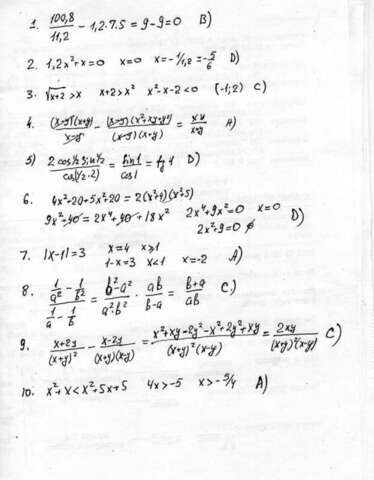 1. 100,8/11,2 − 1,2·7.5 = 9−9=0 B)
2. 1,2x²+x=0 x=0 x=−1/1,2=−5/6 D)
3. √x+2 >x x+2>x² x²−x−2<0 (−1;2) C)
4. (x−y)(x+y)/x−y − (x−y)(x²+xy+y²)/(x−y)(x+y) = xy/x+y A)
5) 2cos1/2 sin1/2 / cos(1/2·2) = sin1/cos1 = tg 1 D)
6. 4x²−20+5x²+20 = 2(x²+4)(x²+5)
9x²+40=2x⁴+40+18x² 2x⁴+9x²=0 x=0 D)
2x²+9=0 ∅
7. |x−1|=3 x=4 x≥1
1−x=3 x<1 x=−2 A)
8. 1/a² − 1/b² / 1/a − 1/b = b²−a²/a²b² · ab/b−a = b+a/ab C.)
9. x+2y/(x+y)² − x−2y/(x+y)(x−y) = x²+xy−2y²−x²+2y²+xy/(x+y)²(x−y) = 2xy/(x+y)²(x−y) C)
10. x²+x<x²+5x+5 4x>−5 x>−5/4 A)